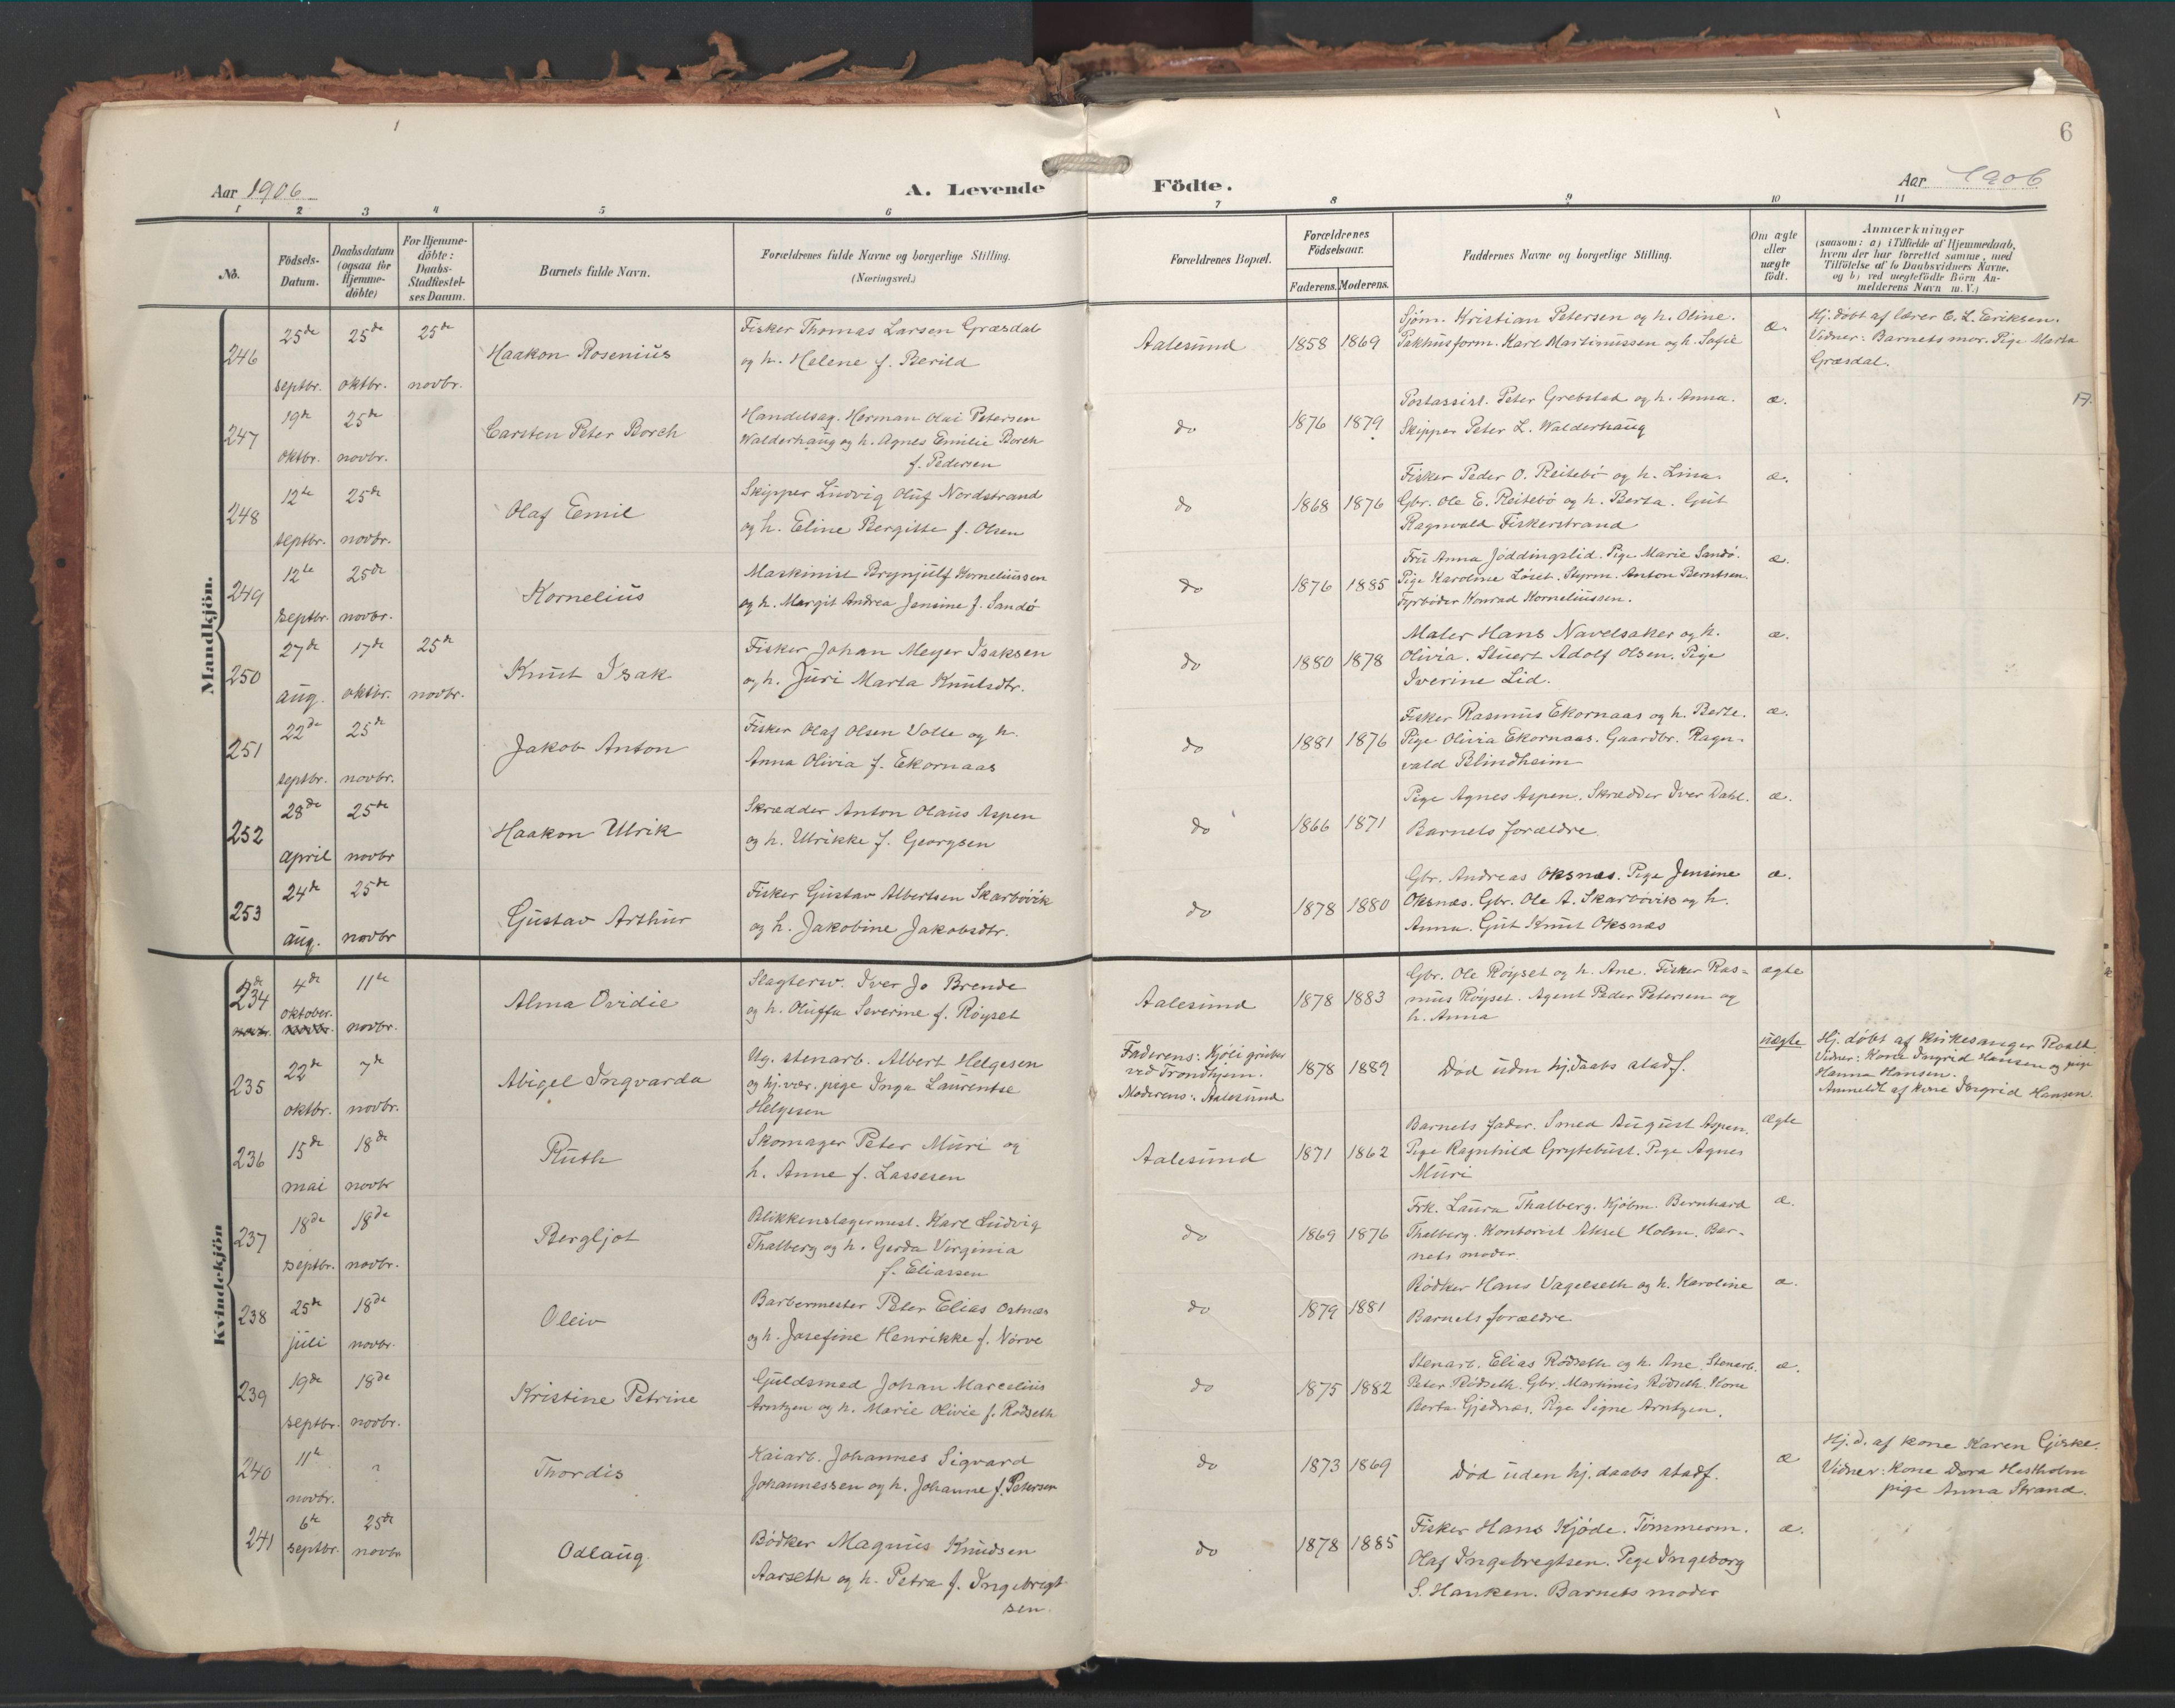 6
Aar 1906
A. Levende Födte.
Aar 1906
1 2 3 4 5 6 7 8 9 10 11
No.
Födsels-Datum.
Daabsdatum (ogsaa för Hjemme-döbte)
For Hjemme-döbte: Daabs-Stadfæstel-ses Datum.
Barnets fulde Navn.
Forældrenes fulde Navne og borgerlige Stilling.
(Næringsvei.)
Forældrenes Bopæl.
Forældrenes Födselsaar.
Faderens. Moderens.
Faddernes Navne og borgerlige Stilling.
Om ægte eller uægte födt.
Anmærkninger
(saasom: a) i Tilfælde af Hjemmedaab, hvem der har forrettet samme, med Tilföielse af to Daabsvidners Navne, og b) ved uægtefödte Börn Anmelderens Navn m. V.)
Mandkjön.
246 25de septbr. 25de oktbr. 25de novbr. Haakon Rosenius
Fisker Thomas Larsen Græsdal
og h. Helene f. Berild
Aalesund 1858 1869
Sjøm. Kristian Petersen og h. Oline.
Pakhusform. Karl Martinussen og h. Sofie
æ.
Hj. døbt af lærer E. L. Eriksen.
Vidner: Barnets mor. Pige Marta
Græsdal.
247 19de oktbr. 25de novbr. Carsten Peter Borch
Handelsag. Herman Olai Petersen
Walderhaug og h. Agnes Emilie Borch
f. Pedersen
do 1876 1879
Postassist. Peter Grebstad og h. Anna.
Skipper Peter L. Walderhaug
æ.
17.
248 12te septbr. 25de novbr. Olaf Emil
Skipper Ludvig Oluf Nordstrand
og h. Eline Bergitte f. Olsen
do 1868 1876
Fisker Peder O. Reitebø og h. Lina.
Gbr. Ole E. Reitebø og h. Berta. Gut
Ragnvald Fiskerstrand
æ.
249 12te septbr. 25de novbr. Kornelius
Maskinist Brynjulf Korneliussen
og h. Margit Andrea Jensine f. Sandø
do 1876 1885
Fru Anna Jøddingslid. Pige Marie Sandø.
Pige Karoline Løset. Styrm. Anton Berntsen.
Fyrbøder Konrad Korneliussen.
æ.
250 27de aug. 17de oktbr. 25de novbr. Knut Isak
Fisker Johan Meyer Isaksen
og h. Juri Marta Knutsdtr.
do 1880 1878
Maler Hans Navelsaker og h.
Olivia. Stuert Adolf Olsen. Pige
Iverine Lid.
æ.
251 22de septbr. 25de novbr. Jakob Anton
Fisker Olaf Olsen Volle og h.
Anna Olivia f. Ekornaas
do 1881 1876
Fisker Rasmus Ekornaas og h. Berte.
Pige Olivia Ekornaas. Gaardbr. Ragn-
vald Blindheim
æ.
252 28de april 25de novbr Haakon Ulrik
Skrædder Anton Olaus Aspen
og h. Ulrikke f. Georgsen
do 1866 1871
Pige Agnes Aspen. Skrædder Iver Dahl.
Barnets forældre.
æ.
253 24de aug. 25de novbr Gustav Arthur
Fisker Gustav Albertsen Skarbøvik
og h. Jakobine Jakobsdtr.
do 1878 1880
Gbr. Andreas Oksnæs. Pige Jensine
Oksnæs. Gbr. Ole A. Skarbøvik og h.
Anna. Gut Knut Oksnæs
æ.
Kvindekjön
234 4de oktober. 11te novbr. Alma Ovidie
Slagtersv. Iver Jo Brende
og h. Oluffa Severine f. Røyset
Aalesund 1878 1883
Gbr. Ole Røyset og h. Ane. Fisker Ras=
mus Røyset. Agent Peder Petersen og
h. Anna
ægte
235 22de oktbr. 7de novbr. Abigel Ingvarda
Ug. stenarb. Albert Helgesen
og hj.vær. pige Inga Laurentse
Helgesen
Faderens: Kjöli gruber
ved Trondhjem.
Moderens: Aalesund
1878 1889
Død uden hj.daabs stadf.
uægte
Hj. døbt af kirkesanger Roald.
Vidner: Kone Ingrid Hansen og pige
Hanna Hansen.
Anmeldt af kone Ingrid Hansen.
236 15de mai 18de novbr Ruth
Skomager Peter Muri og
h. Anne f. Lassesen
Aalesund 1871 1862
Barnets fader. Smed August Aspen.
Pige Ragnhild Grytebust. Pige Agnes
Muri
ægte
237 18de septbr. 18de novbr. Bergljot
Blikkenslagermest. Karl Ludvig
Thalberg og h. Gerda Virginia
f. Eliassen
do 1869 1876
Frk. Laura Thalberg. Kjøbm. Bernhard
Thalberg. Kontorist Aksel Holm. Bar-
nets moder.
æ.
238 25de juli 18de novbr. Oleiv
Barbermester Peter Elias Ostnæs
og h. Josefine Henrikke f. Vorve
do 1879 1881
Bødker Hans Vagelseth og h. Karoline
Barnets forældre
æ.
239 19de septbr. 18de novbr. Kristine Petrine
Guldsmed Johan Marcelius
Arntzen og h. Marie Olivie f. Rødseth
do 1875 1882
Stenarb. Elias Rødseth og h. Ane. Stenarb.
Peter Rødseth. Gbr. Martinus Rødseth. Kone
Berta Gjednæs. Pige Signe Arntzen.
æ.
240 11te novbr. ? Thordis
Kaiarb. Johannes Sigvard
Johannessen og h. Johanne f. Petersen
do 1873 1869
Død uden hj. daabs stadf.
æ
Hj. d. af kone Karen Giske.
Vidner: Kone Dora Hestholm
pige Anna Strand.
241 6te septbr. 25de novbr Odlaug.
Bødker Magnus Knudsen
Aarseth og h. Petra f. Ingebrigt-
sen.
do 1878 1885
Fisker Hans Kjøde. Tømmerm.
Olaf Ingebregtsen. Pige Ingeborg
S. Hanken. Barnets moder
æ.